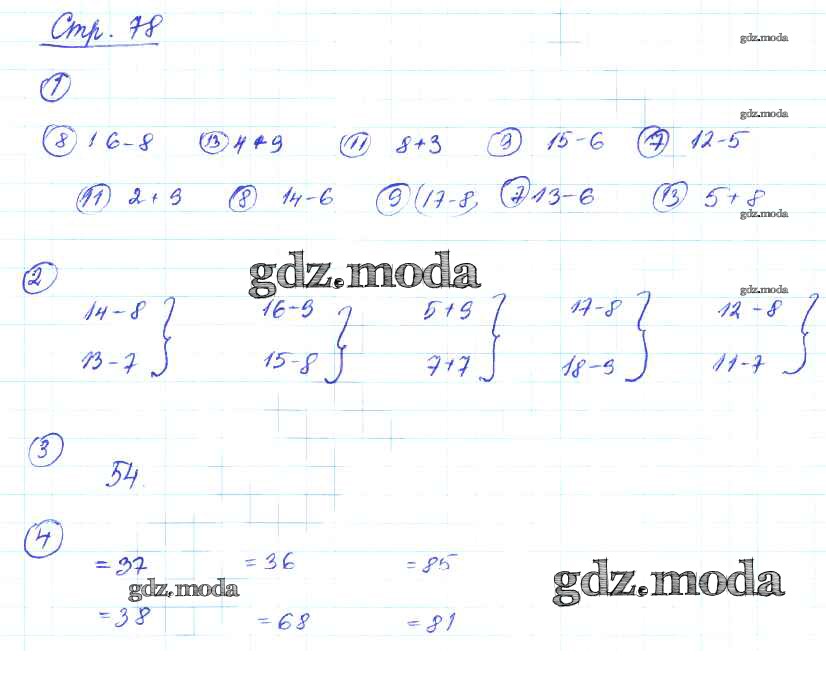 Стр. 78
gdz.moda
1
gdz.moda
8 16-8 13 4+9 11 8+3 9 15-6 7 12-5
11 2+9 8 14-6 9 (17-8) 7 13-6 13 5+8
gdz.moda
2 gdz.moda
gdz.moda
14-8 } 16-9 } 5+9 } 17-8 } 12-8 }
13-7 15-8 7+7 18-9 11-7
3
54.
4
=37 =36 =85
gdz.moda gdz.moda
=38 =68 =81